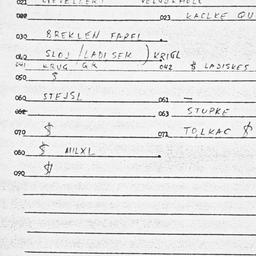 021
020 023 KACLKE QU
030 BREKLEN FADEL
040 SLOJ / LADISEK ) KRIGL
041 KRUG GR 042 $ LADISKES
050 $
060 STEJSL 061 —
062 063 STUPKE
070 $ 071 TOLKAC $
080 $ MILXL
090 $